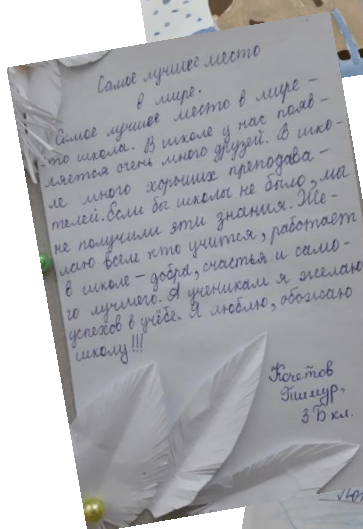 Самое лучшее место
в мире.
Самое лучшее место в мире –
это школа. В школе у нас появ-
ляется очень много друзей. В шко-
ле много хороших преподава-
телей. Если бы школы не было, мы
не получили эти знания. Же-
лаю всем кто учится, работает
в школе – добра, счастья и само-
го лучшего. А ученикам я желаю
успехов в учёбе. Я люблю, обожаю
школу!!!
Кочетов
Тимур,
3 Б кл.